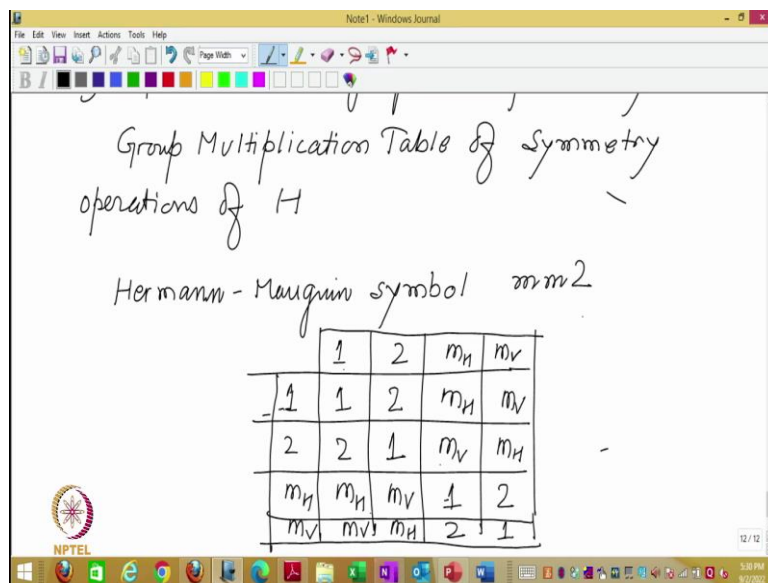 Note1 - Windows Journal
File Edit View Insert Actions Tools Help
Page Width
B I
Group Multiplication Table of Symmetry
operations of H
Hermann-Mauguin symbol mm2
1 2 mH mV
1 1 2 mH mV
2 2 1 mV mH
mH mH mV 1 2
mV mV mH 2 1
NPTEL
12/12
5:30 PM
9/2/2022